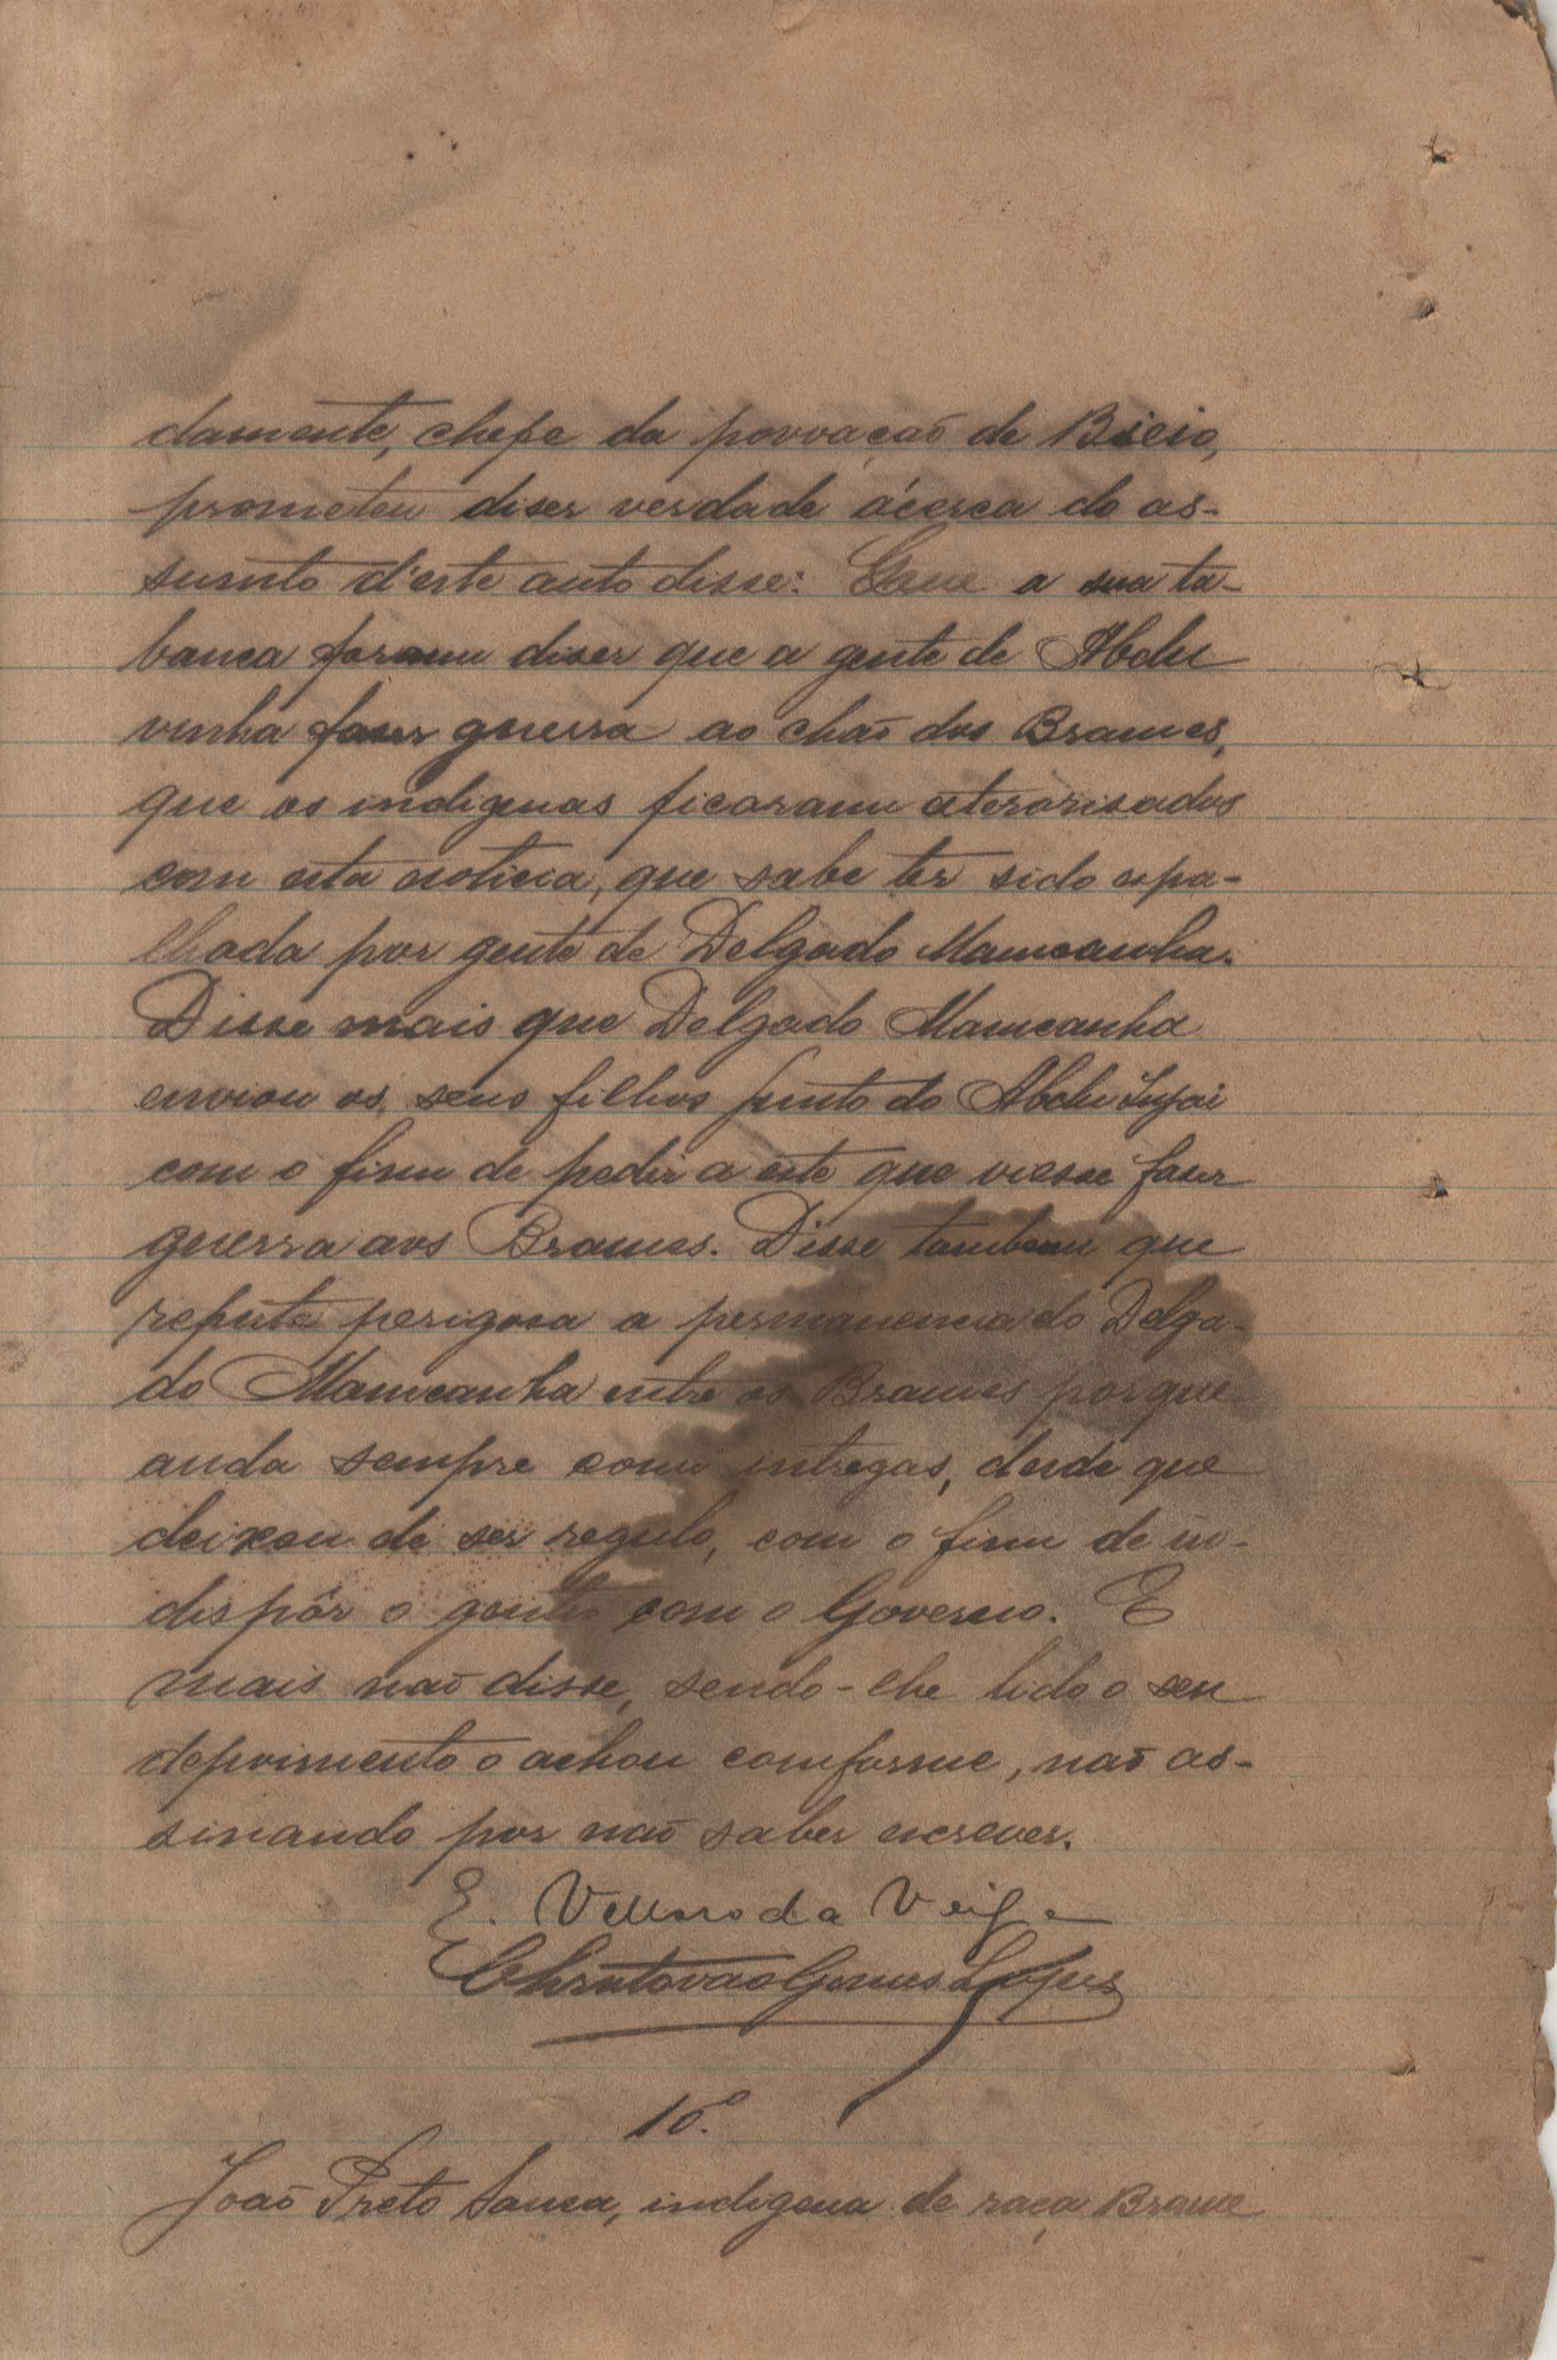 damente, chefe da povoação de Bieio,
prometeu diser verdade ácerca do as-
sunto d'este auto disse: Que a sua ta-
banca foram diser que a gente de Abdu
vinha faser guerra ao chão dos Brames,
que os indigenas ficaram aterorisados
com esta noticia, que sabe ter sido espa-
lhada por gente de Delgado Mamcanha.
Disse mais que Delgado Mamcanha
enviou os seus filhos junto do Abdu Injai
com o fim de pedir a este que viesse faser
guerra aos Brames. Disse tambem que
reputa perigosa a permanencia do Delga-
do Mamcanha entre os Brames porque
anda sempre com intregas, desde que
deixou de ser regulo, com o fim de in-
dispôr o gentio com o Governo. E
mais não disse, sendo-lhe lido o seu
depoimento o achou comforme, não as-
sinando por não saber escrever.
E. Velloso da Veiga
Christovão Gomes Lopes
10.º
João Preto Sanca, indigena de raça Brame